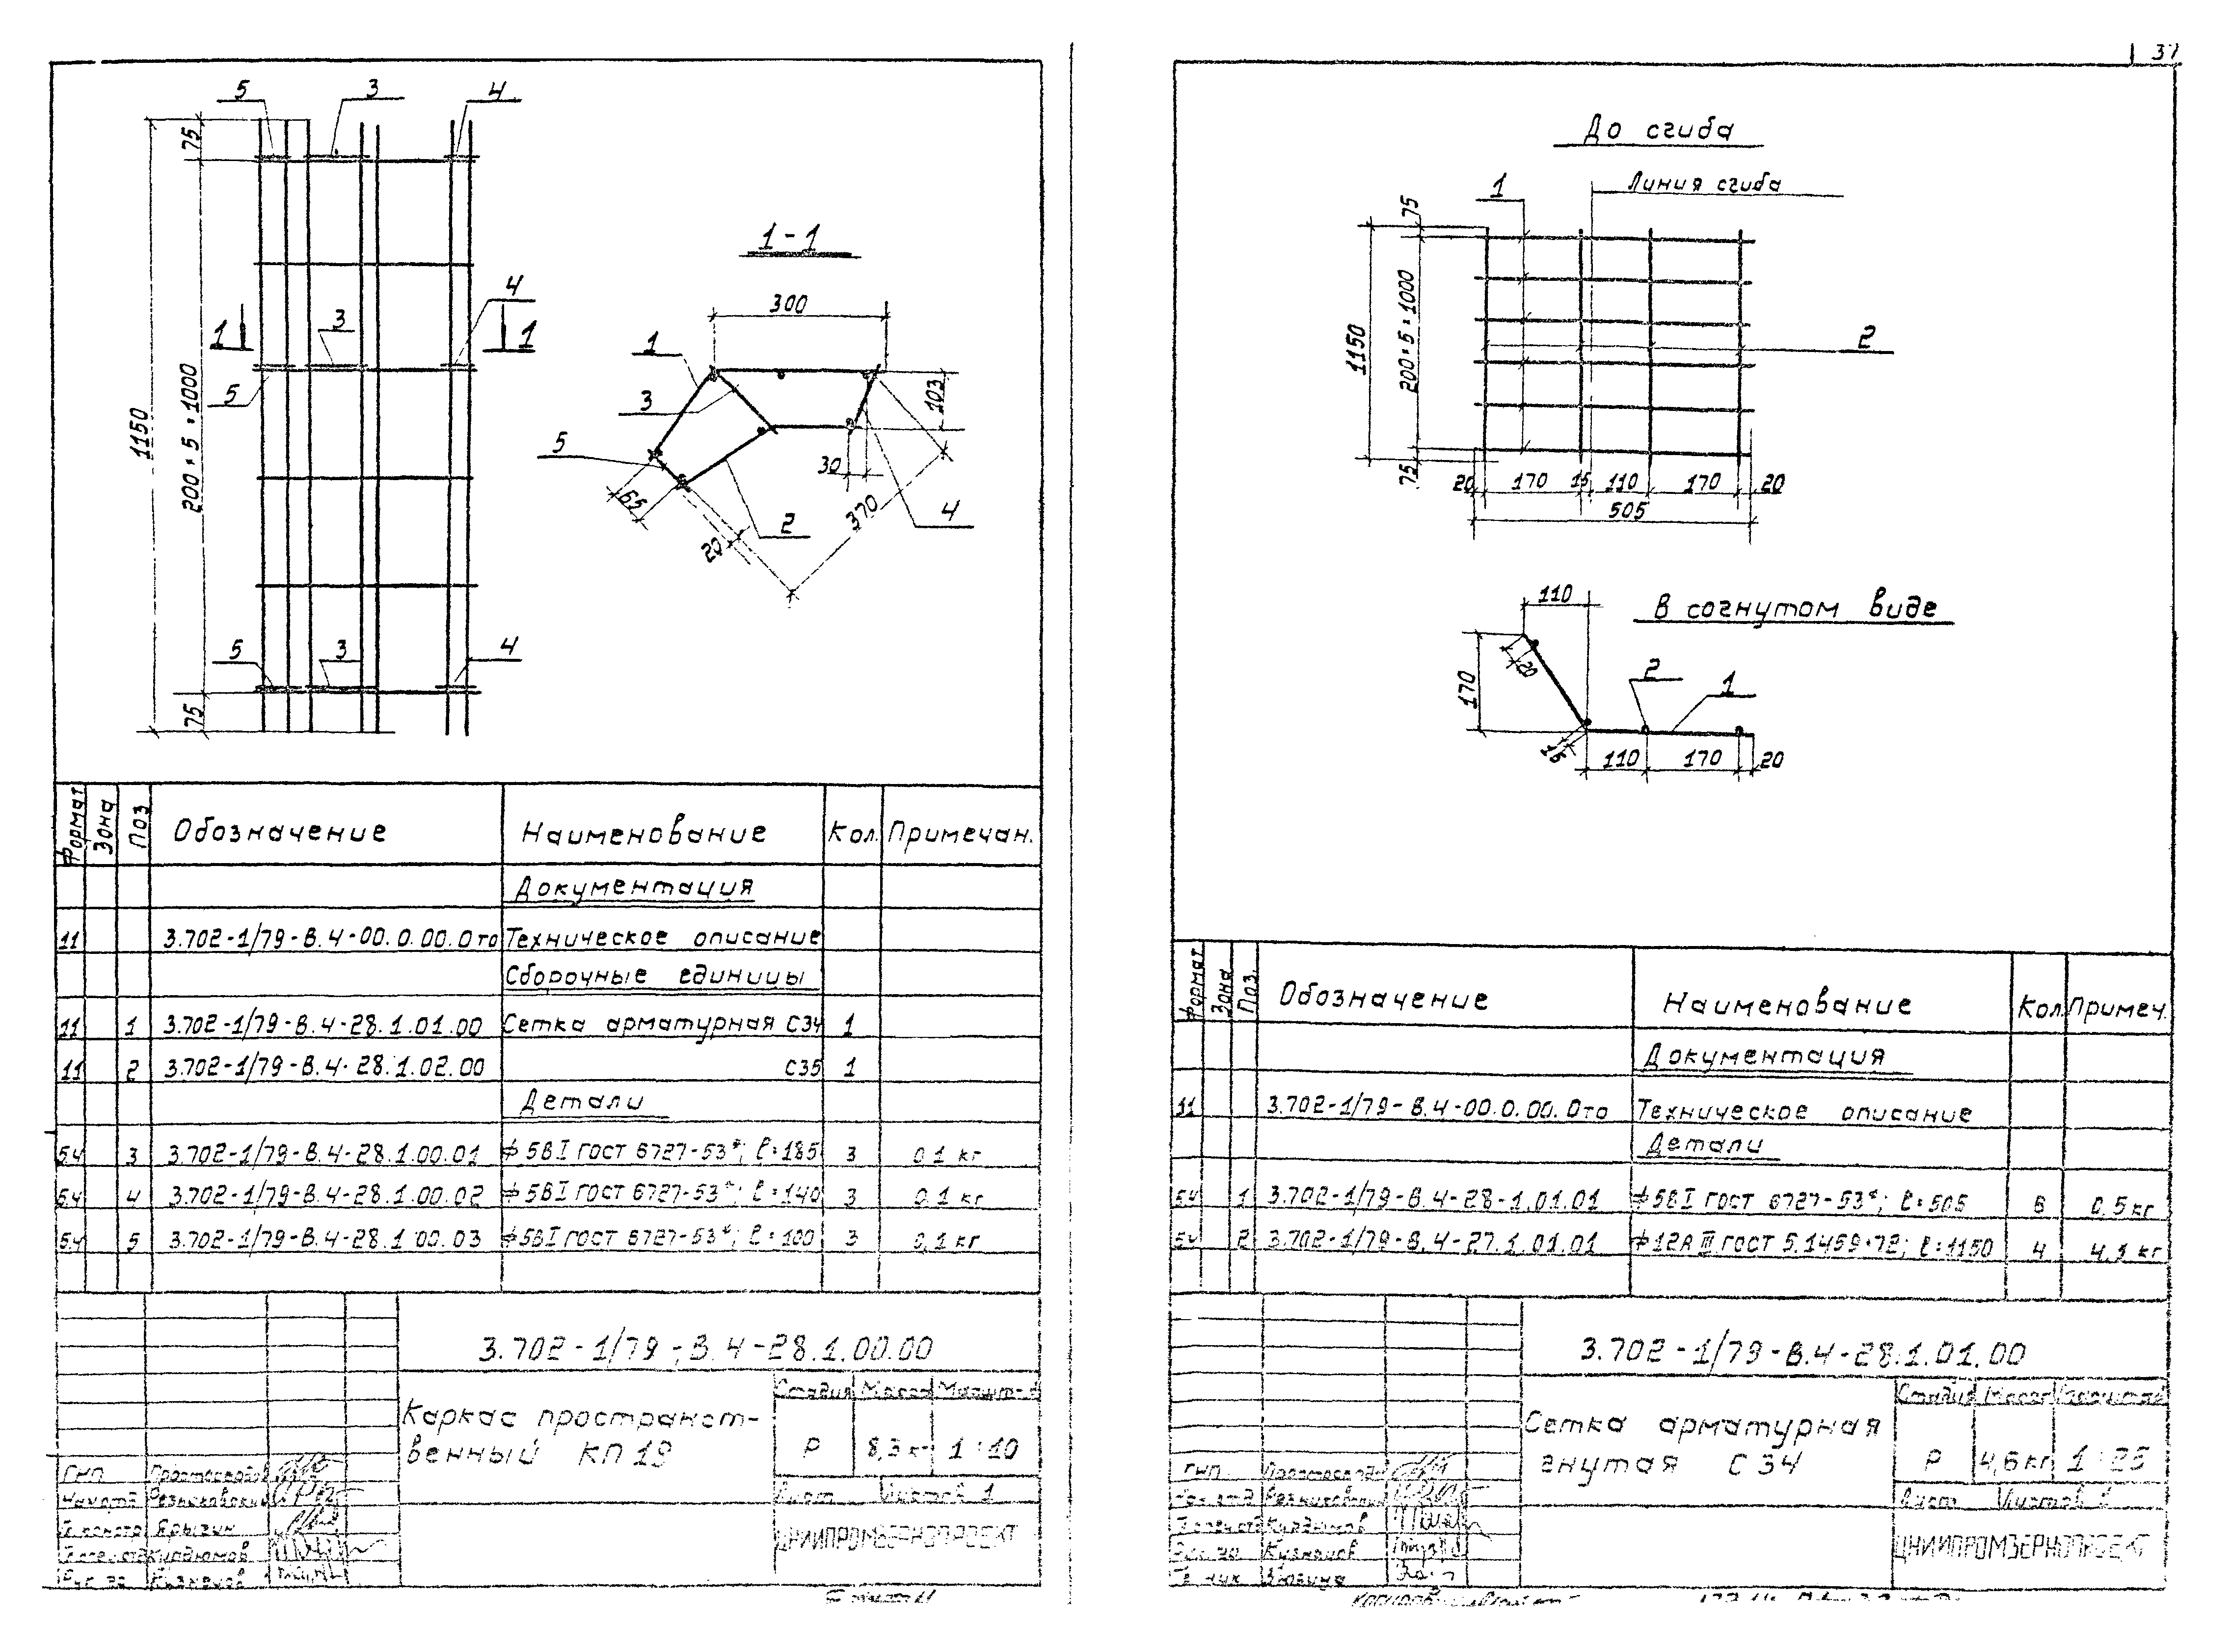 37
5
3
4
75
1150
200×5=1000
1
1
3
4
5
5
3
4
75
1-1
300
1
3
5
103
30
65
2
20
370
4
Формат
Зона
Поз
Обозначение
Наименование
Кол.
Примечан.
Документация
11 3.702-1/79-В.4-00.0.00.0то Техническое описание
Сборочные единицы
11 1 3.702-1/79-В.4-28.1.01.00 Сетка арматурная С34 1
11 2 3.702-1/79-В.4-28.1.02.00 С35 1
Детали
Б.Ч 3 3.702-1/79-В.4-28.1.00.01 ф5ВI ГОСТ 6727-53*; ℓ=185 3 0.1 кг
Б.Ч 4 3.702-1/79-В.4-28.1.00.02 ф5ВI ГОСТ 6727-53*; ℓ=140 3 0.1 кг
Б.Ч 5 3.702-1/79-В.4-28.1.00.03 ф5ВI ГОСТ 6727-53*; ℓ=100 3 0,1 кг
3.702-1/79-В.4-28.1.00.00
Каркас пространст-
венный КП19
Стадия Масса Масштаб
Р 8,3 кг 1:10
Лист Листов 1
ЦНИИПРОМЗЕРНОПРОЕКТ
ГИП
Нач.отд Резниковский
Гл.констр Ярыгин
Курдюмов
Рук.гр Кузнецов
Формат 11
До сгиба
Линия сгиба
1
75
1150
200×5=1000
2
75
20 170 15 110 170 20
505
В согнутом виде
110
170
20
2
1
15
110 170 20
Формат
Зона
Поз.
Обозначение
Наименование
Кол.
Примеч.
Документация
11 3.702-1/79-В.4-00.0.00.0то Техническое описание
Детали
Б.Ч 1 3.702-1/79-В.4-28-1.01.01 ф5ВI ГОСТ 6727-53*; ℓ=505 6 0.5 кг
Б.Ч 2 3.702-1/79-В.4-27.1.01.01 ф12АIII ГОСТ 5.1459-72; ℓ=1150 4 4,1 кг
3.702-1/79-В.4-28.1.01.00
Сетка арматурная
гнутая С34
Стадия Масса Масштаб
Р 4,6 кг 1:25
Лист Листов
ЦНИИПРОМЗЕРНОПРОЕКТ
ГИП
Нач.отд Резниковский
Курдюмов
Рук.гр Кузнецов